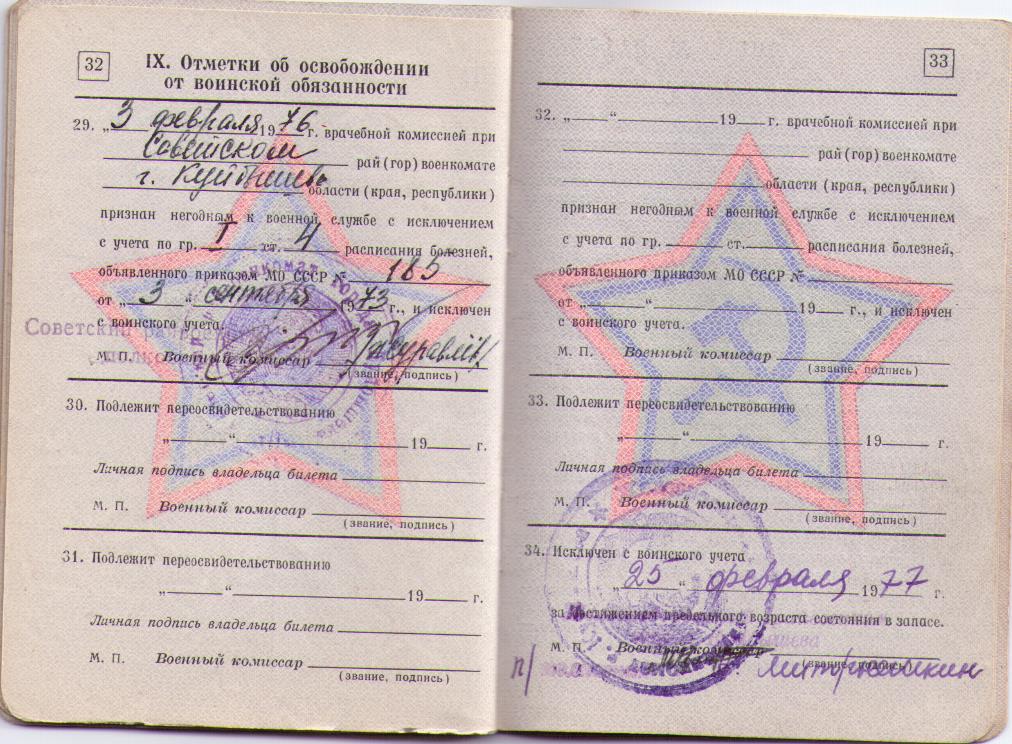 32
IX. Отметки об освобождении
от воинской обязанности
29. „3 февраля 1976 г. врачебной комиссией при
Советском рай (гор) военкомате
г. Куйбышева области (края, республики)
признан негодным к военной службе с исключением
с учета по гр. I ст. 4 расписания болезней,
объявленного приказом МО СССР № 185
от „3“ сентября 1973 г., и исключен
с воинского учета.
Советский
М. П. Военный комиссар
(звание, подпись)
30. Подлежит переосвидетельствованию
„ “ 19 г.
Личная подпись владельца билета
М. П. Военный комиссар
(звание, подпись)
31. Подлежит переосвидетельствованию
„ “ 19 г.
Личная подпись владельца билета
М. П. Военный комиссар
(звание, подпись)
33
32. „ “ 19 г. врачебной комиссией при
рай (гор) военкомате
области (края, республики)
признан негодным к военной службе с исключением
с учета по гр. ст. расписания болезней,
объявленного приказом МО СССР №
от „ “ 19 г., и исключен
с воинского учета.
М. П. Военный комиссар
(звание, подпись)
33. Подлежит переосвидетельствованию
„ “ 19 г.
Личная подпись владельца билета
М. П. Военный комиссар
(звание, подпись)
34. Исключен с воинского учета
„25“ февраля 1977 г.
за достижением предельного возраста состояния в запасе.
М. П. Военный комиссар
п/ (звание, подпись)